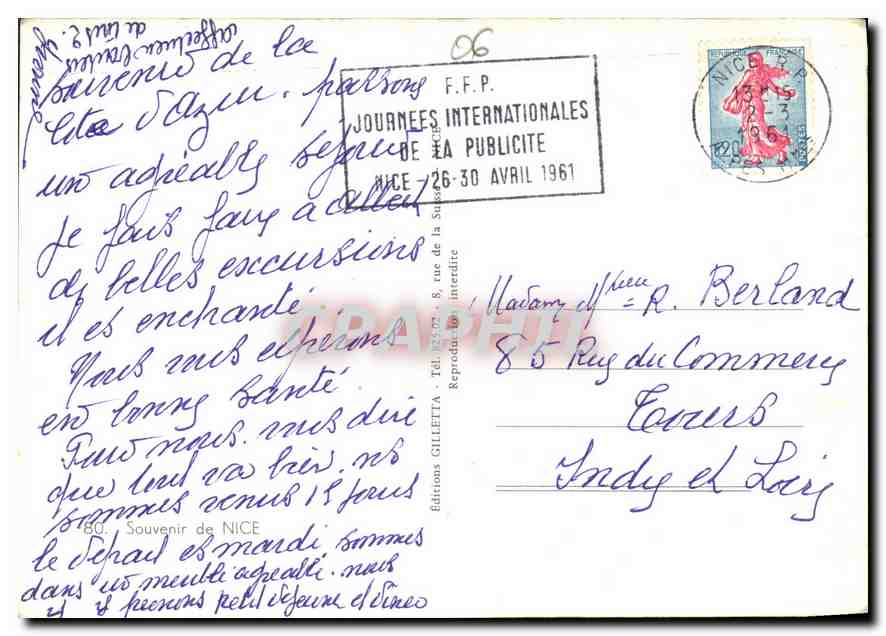 affectueux baisers
de tous 2. Yvonne
Souvenir de la
Côte d'Azur. passons
un agréable séjour
je fais faire à albert
de belles excursions
il es enchanté
Nous vous espérons
en bonne santé.
Pour nous. vous dire
que tout va bien. ns
sommes venus 15 jours
le départ es mardi sommes
dans un meublé agréable. nous
y prenons petit déjeuné et dîner
80. Souvenir de NICE
06
F.F.P.
JOURNEES INTERNATIONALES
DE LA PUBLICITE
NICE - 26-30 AVRIL 1961
REPUBLIQUE FRANÇAISE
POSTES
NICE R.P.
13H15
2-3
1961
Editions GILLETTA - Tél. 825.02 - 8, rue de la Suisse, NICE
Reproduction interdite
CPAPHIL
Madame Msieu = R. Berland
85 Rue du Commerce
Tours
Indre et Loire